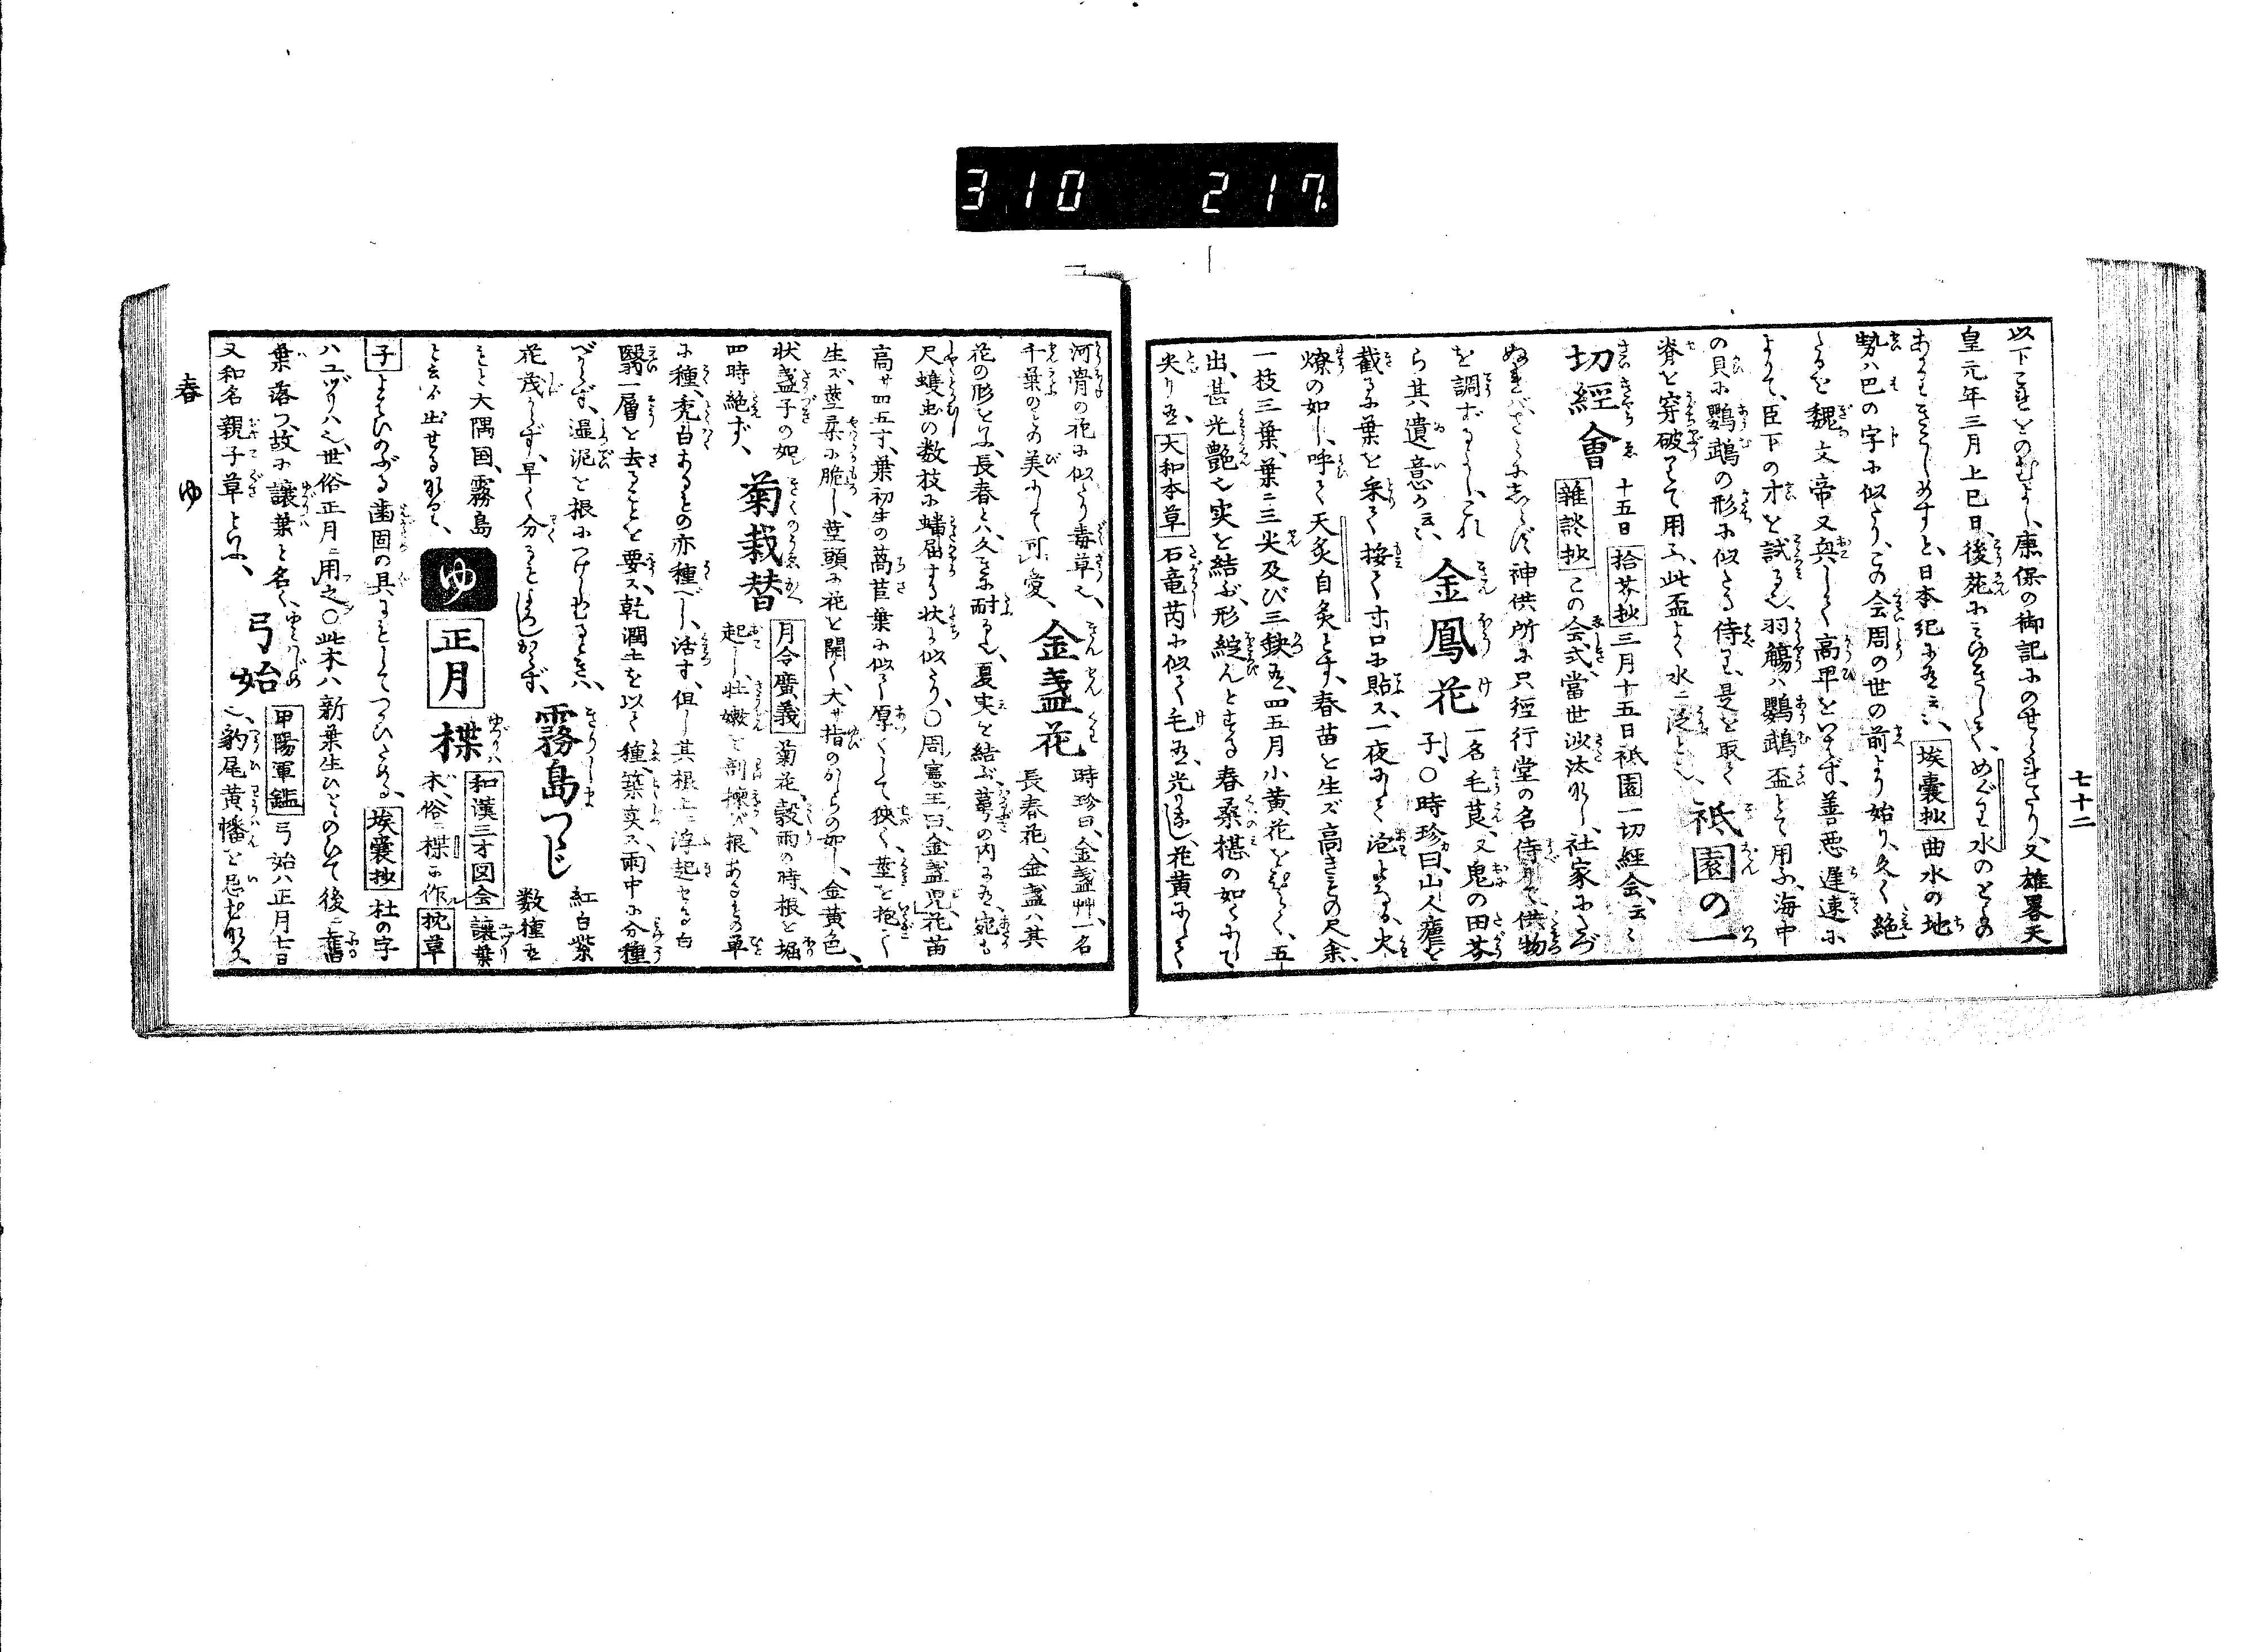 310 217.
七十二
以下これをとのむよし、康保の御記にのせられたり、又雄畧天
皇元年三月上巳日、後苑にみゆきして、めぐり水のとよの
あかりきこしめすと、日本紀に在、埃囊抄 曲水の地
勢ハ巴の字に似たり、この会周の世の前より始り、久く絶
たるを魏文帝又興して高卑をいはず、善悪遅速に
よりて、臣下の才を試る也、羽觴ハ鸚鵡盃とて用ふ、海中
の貝に鸚鵡の形に似たる侍り、是を取て
脊を穿破りて用ふ、此盃よく水ニ泛
祇園の一
切經會
十五日 拾芥抄 三月十五日祇園一切經会、云々
雜談抄 この会式、當世沙汰なし、社家にたづ
ぬれバ、さらにしらず、神供所に只經行堂の名侍りて、供物
を調ずるよし、これ
ら其遺意か
金鳳花
一名毛茛、又鬼の田芥
子、○時珍曰、山人瘧を
截るに葉を采て按て寸口に貼ス、一夜にして泡おこる、火
燎の如し、呼て天灸自灸とす、春苗を生ズ高きもの尺余、
一枝三葉、葉ニ三尖及び三鈌在、四五月小黄花をひらく、五
出、甚光艶也実を結ぶ、形綻んとする春桑椹の如くにして
尖り在、大和本草 石竜芮に似て毛在、光りなし、花黄にして
河骨の花に似たり毒草也、
千葉のもの美にして可愛、
金盞花
時珍曰、金盞艸、一名
長春花、金盞ハ其
花の形をいふ、長春とハ久きに耐る也、夏実を結ぶ、萼の内に在、宛も
尺蠖虫の数枝に蟠屈する状に似たり、○周憲王曰、金盞児花苗
高サ四五寸、葉初生の萵苣葉に似て厚くして狭く、莖を抱て
生ズ、莖柔に脆し、莖頭に花を開く、大サ指のかしらの如し、金黄色、
状盞子の如し
四時絶ず、
菊栽替
月令廣義 菊花、穀雨の時、根を堀
起し、壮嫩を剖擦び根あるもの單
に種、禿白あるもの亦種べし、活す、但し其根上浮起せる白
翳一層を去ることを要ス、乾潤土を以て種、築実ス雨中に分種
べからず、湿泥を根につけしむるときハ、
花茂らず、早く分るをよしからず、
霧島つゝじ
紅白紫
数種在
そも大隅国、霧島
と云所出せるなるべし、
ゆ
正月
楪
和漢三才図会 讓葉
木、俗ニ楪に作 枕草
子 よはひのぶる歯固の具にもして、つかひためる、埃囊抄 杜の字
ハユヅリハ也、世俗正月ニ用之○此木ハ新葉生ひとゝのいて後ニ舊
葉落つ、故に讓葉と名く、
又和名親子草といふ、
弓始
甲陽軍鑑 弓始ハ正月七日
也、豹尾黄幡を忌むなり
春 ゆ